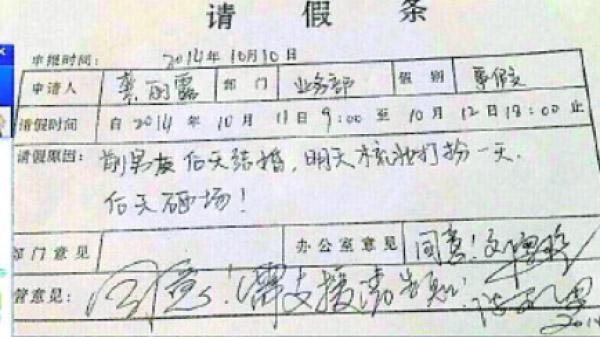 请假条
申报时间: 2014年10月10日
申请人 龚丽露 部门 业务部 假别 事假
请假时间 自2014年10月11日9:00至10月12日18:00止
请假原因: 前男友后天结婚,明天梳妆打扮一天.
后天砸场!
部门意见 办公室意见 同意!
管意见: 同意!需支援请告知
2014